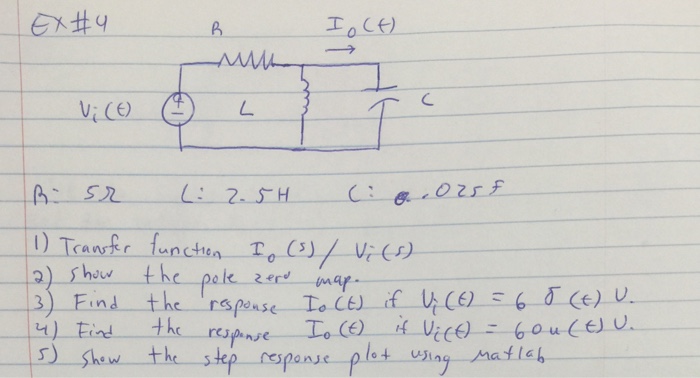 EX#4
R
I₀(t)
Vᵢ(t)
L
C
R: 5Ω L: 2.5H C: .025F
1) Transfer function I₀(s)/Vᵢ(s)
2) show the pole zero map.
3) Find the response I₀(t) if Vᵢ(t) = 6 δ(t) V.
4) Find the response I₀(t) if Vᵢ(t) = 60u(t) V.
5) Show the step response plot using Matlab